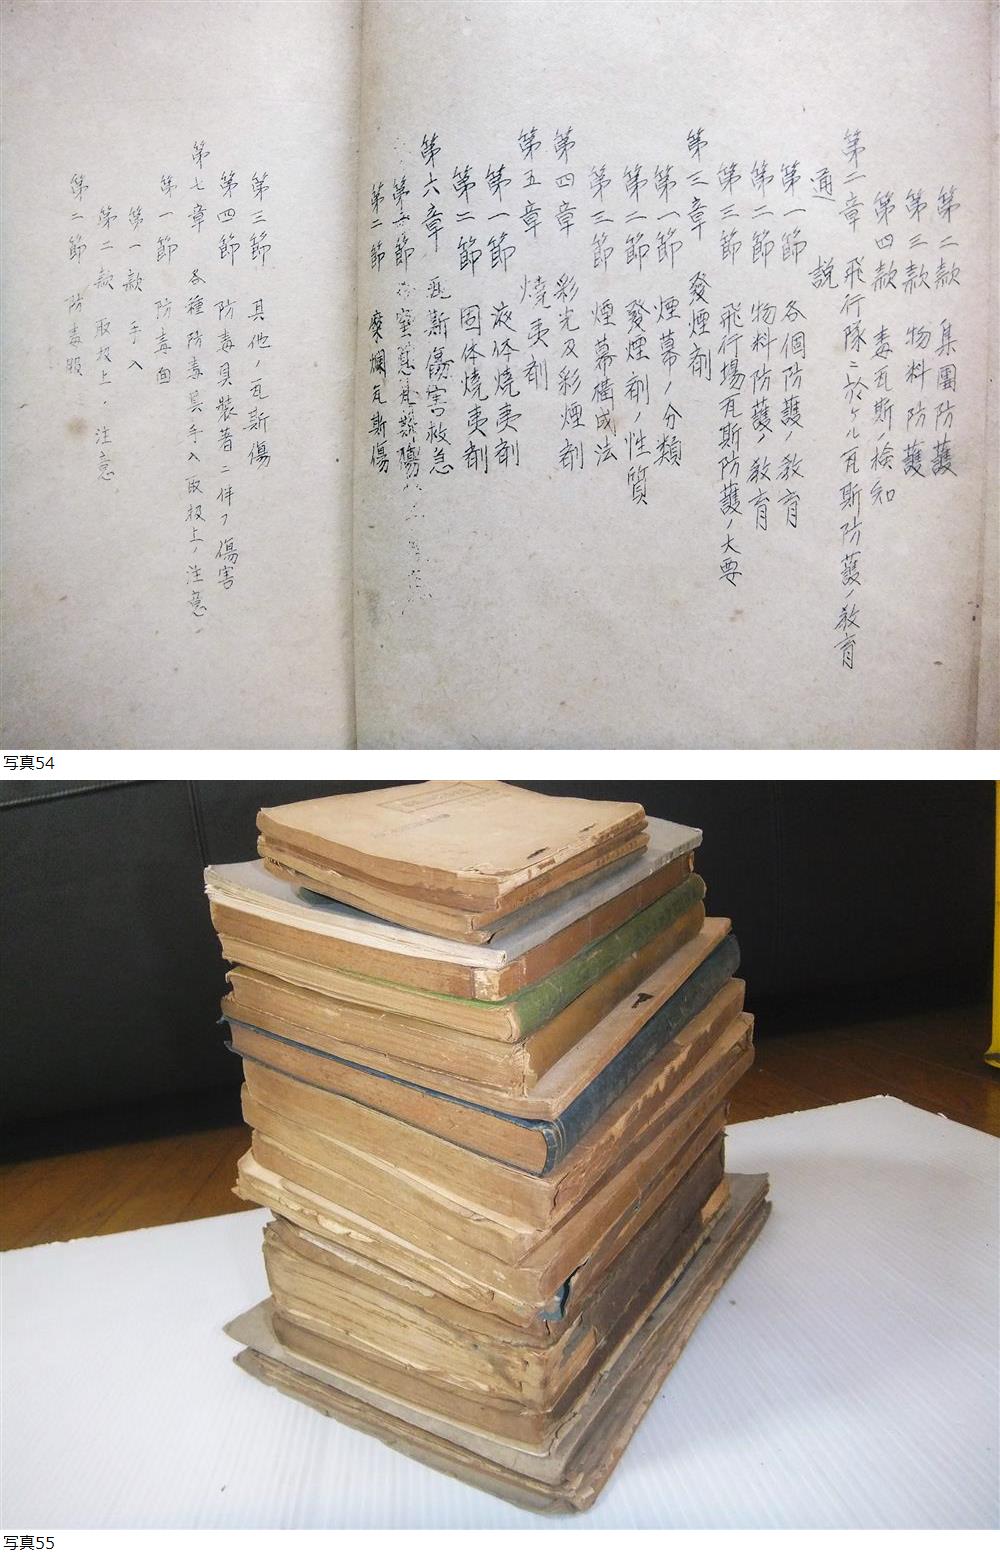 第二款 集團防護
第三款 物料防護
第四款 毒瓦斯ノ檢知
第二章 飛行隊ニ於ケル瓦斯防護ノ教育
通説
第一節 各個防護ノ教育
第二節 物料防護ノ教育
第三節 飛行場瓦斯防護ノ大要
第三章 發煙剤
第一節 煙幕ノ分類
第二節 發煙剤ノ性質
第三節 煙幕構成法
第四章 彩光及彩煙剤
第五章 燒夷剤
第一節 液体燒夷剤
第二節 固体燒夷剤
第六章 瓦斯傷害救急
第一節 瓦斯傷
第二節 糜爛瓦斯傷
第三節 其他ノ瓦斯傷
第四節 防毒具裝著ニ伴フ傷害
第七章 各種防毒具手入取扱上ノ注意
第一節 防毒面
第一款 手入
第二款 取扱上ノ注意
第二節 防毒服
写真54
写真55